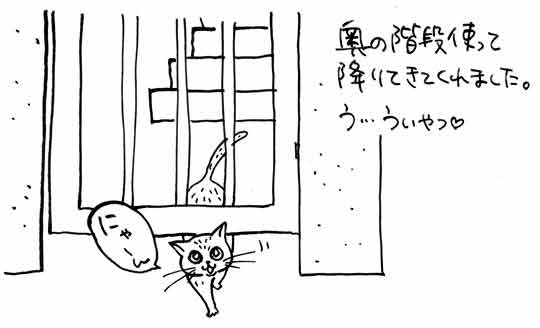 奥の階段使って
降りてきてくれました。
う…ういやつ♡
にゃーん